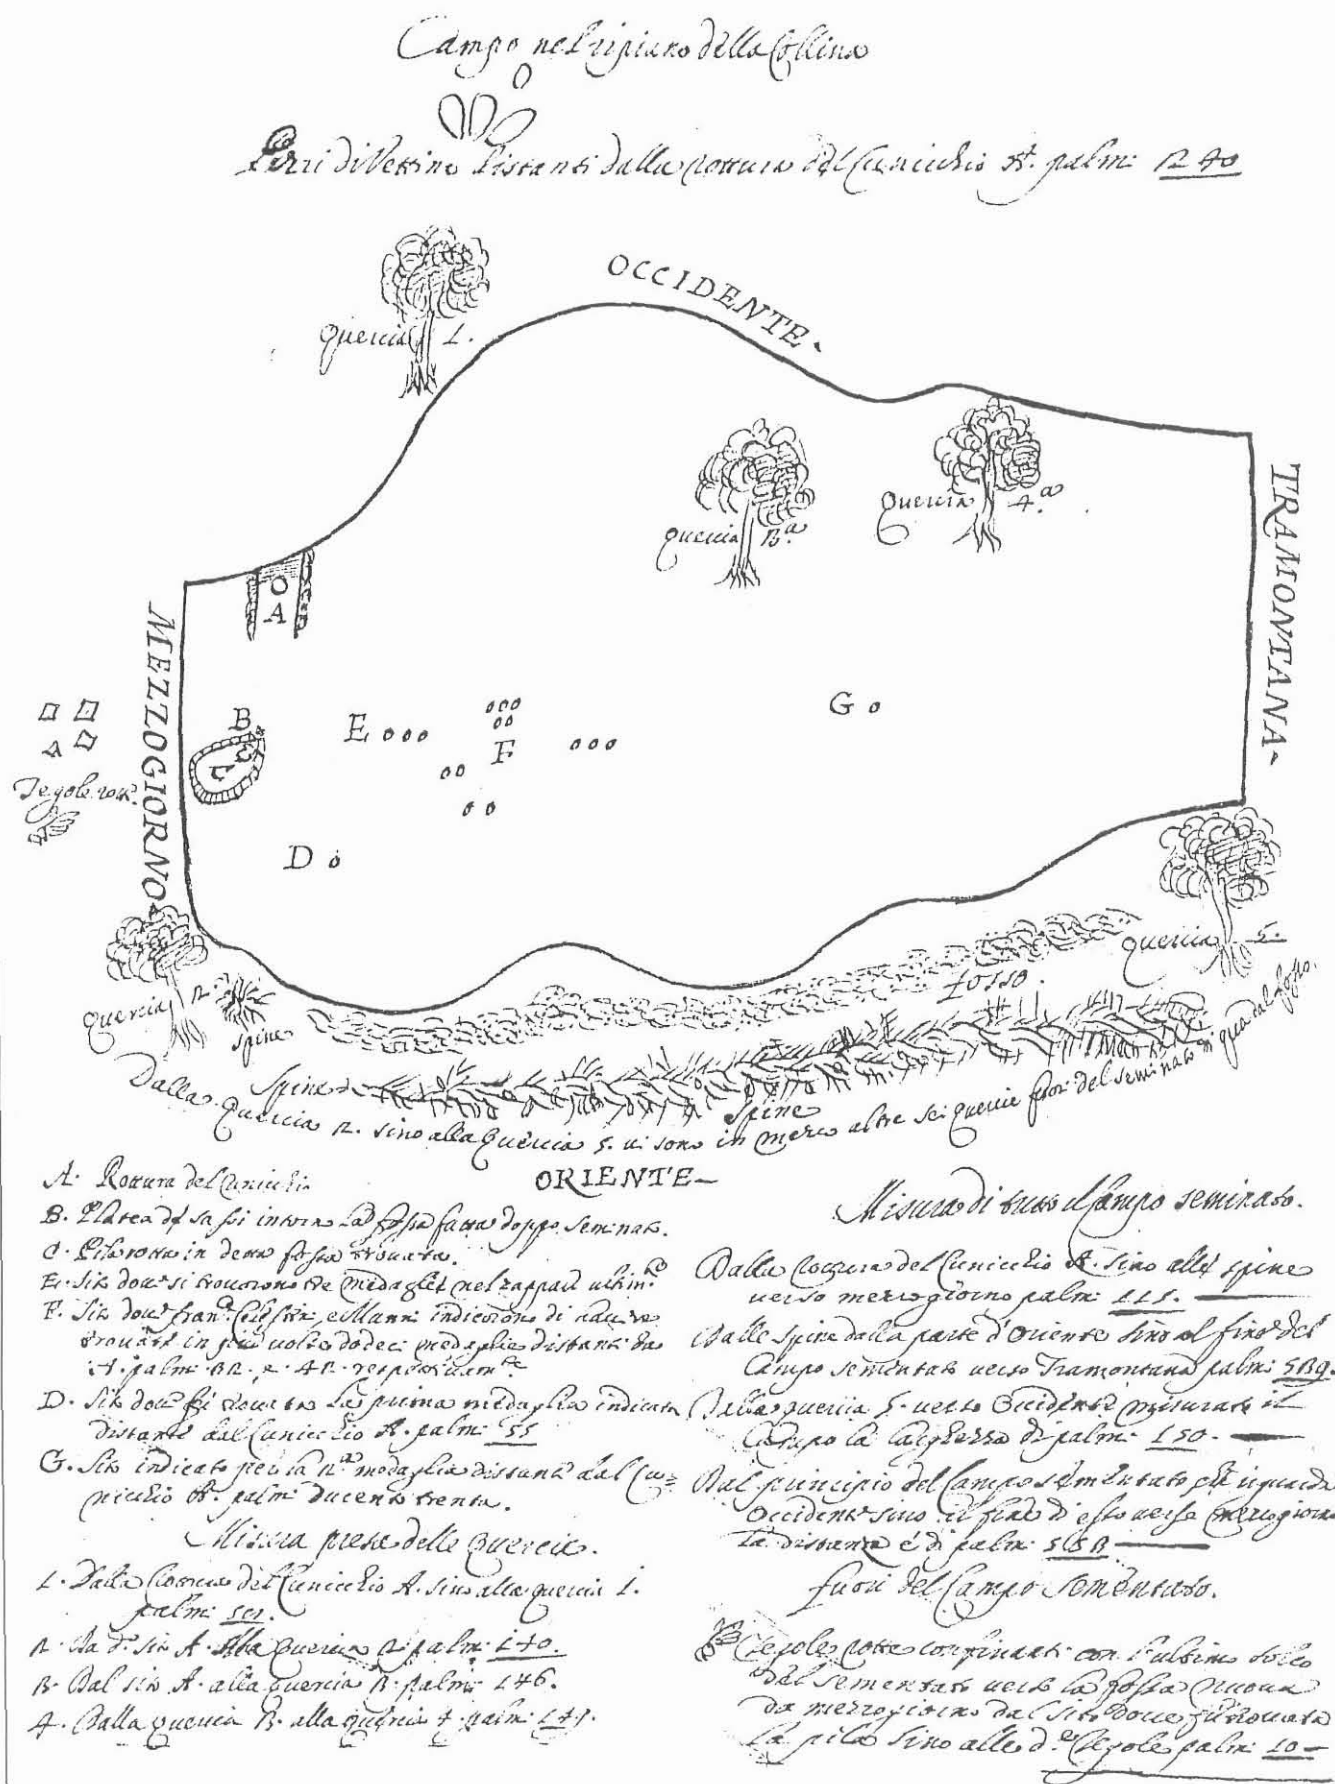 Campo nel ripiano della Collina
Pezzi di Vettine distanti dalla rottura del Cunicchio A. palmi 240
OCCIDENTE
Quercia 1.
Quercia 3.ª
Quercia 4.ª
TRAMONTANA
MEZZOGIORNO
O
A
B
C
E
F
G
D
Tegole rotte
Quercia 2.
spine
fosso.
Quercia 5.
Spine
Spine
Dalla Quercia 2. sino alla Quercia 5. vi sono in mezzo altre sei quercie fuori del seminato di qua dal fosso.
ORIENTE
A. Rottura del Cunicchio
B. Platea di sassi intorno la fossa fatta doppo seminato.
C. Pila rotta in detta fossa trovata.
E. Sito dove si trovorono tre medaglie nel zappar
F. Sito dove Celestini, e Manni indicorono di havere
trovate in più volte dodeci medaglie distanti da
A. palmi 32. e 42. respettivamte
D. Sito dove fu trovata la prima medaglia indicata
distante dal Cunicchio A. palmi 55
G. Sito indicato per la 2ª medaglia distante dal Cu=
nicchio A. palmi ducento trenta.
Misura prese delle Quercie.
1. Dalla rottura del Cunicchio A. sino alla quercia 1.
palmi
2. Da do sito A. alla Quercia 2. palmi 140.
3. Dal sito A. alla Quercia 3. palmi 146.
4. Dalla quercia 3. alla quercia 4. palmi
Misura di tutto il Campo seminato.
Dalla rottura del Cunicchio A. sino alle spine
verso mezzogiorno palmi 115.
Dalle spine dalla parte d'Oriente sino al fine del
Campo sementato verso Tramontana palmi 539.
Dalla quercia 5. verso Occidente misurato il
Campo la larghezza di palmi 150.
Dal principio del Campo sementato che riguarda
Occidente sino il fine di esso verso mezzogiorno
la distanza é di palmi
fuori del Campo Sementato.
Tegole rotte confinanti con l'ultimo solco
del sementato verso la fossa nuova
da mezzogiorno dal sito dove fu trovata
la pila sino alle de Tegole palmi 10